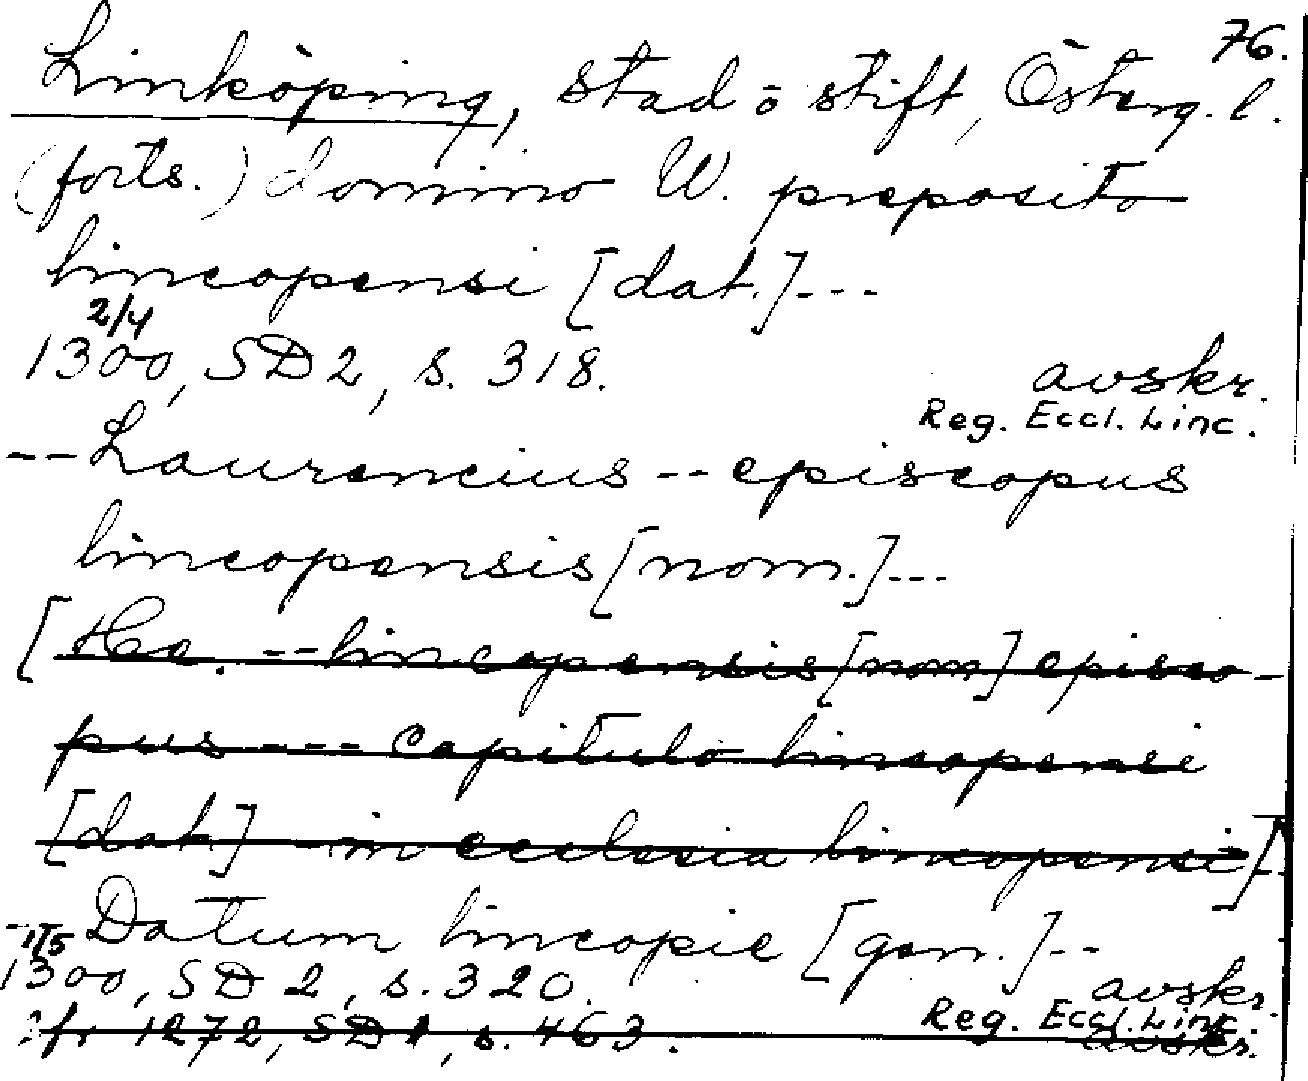 76.
Linköping, stad o stift, Österg. l.
(forts.) domino W. preposito
lincopensi [dat.]---
2/4
1300, SD 2, s. 318. avskr.
Reg. Eccl. Linc.
-- Laurencius -- episcopus
lincopensis [nom.]---
[ -- lincopensis [nom] episco-
pus --- capitulo lincopensi
[dat.] - in ecclesia lincopensi]
Datum lincopie [gen.]--
1/5
1300, SD 2, s. 320. avskr.
Reg. Eccl. Linc.
1272, SD 1, s. 463. avskr.